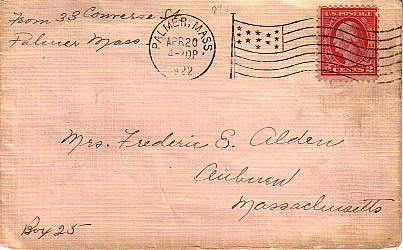 from 33 Converse St.
Palmer Mass
PALMER, MASS.
APR 20
4-30P
1922
U.S. POSTAGE
2 CENTS 2
Mrs. Frederic E. Alden
Auburn
Massachusetts
Box 25